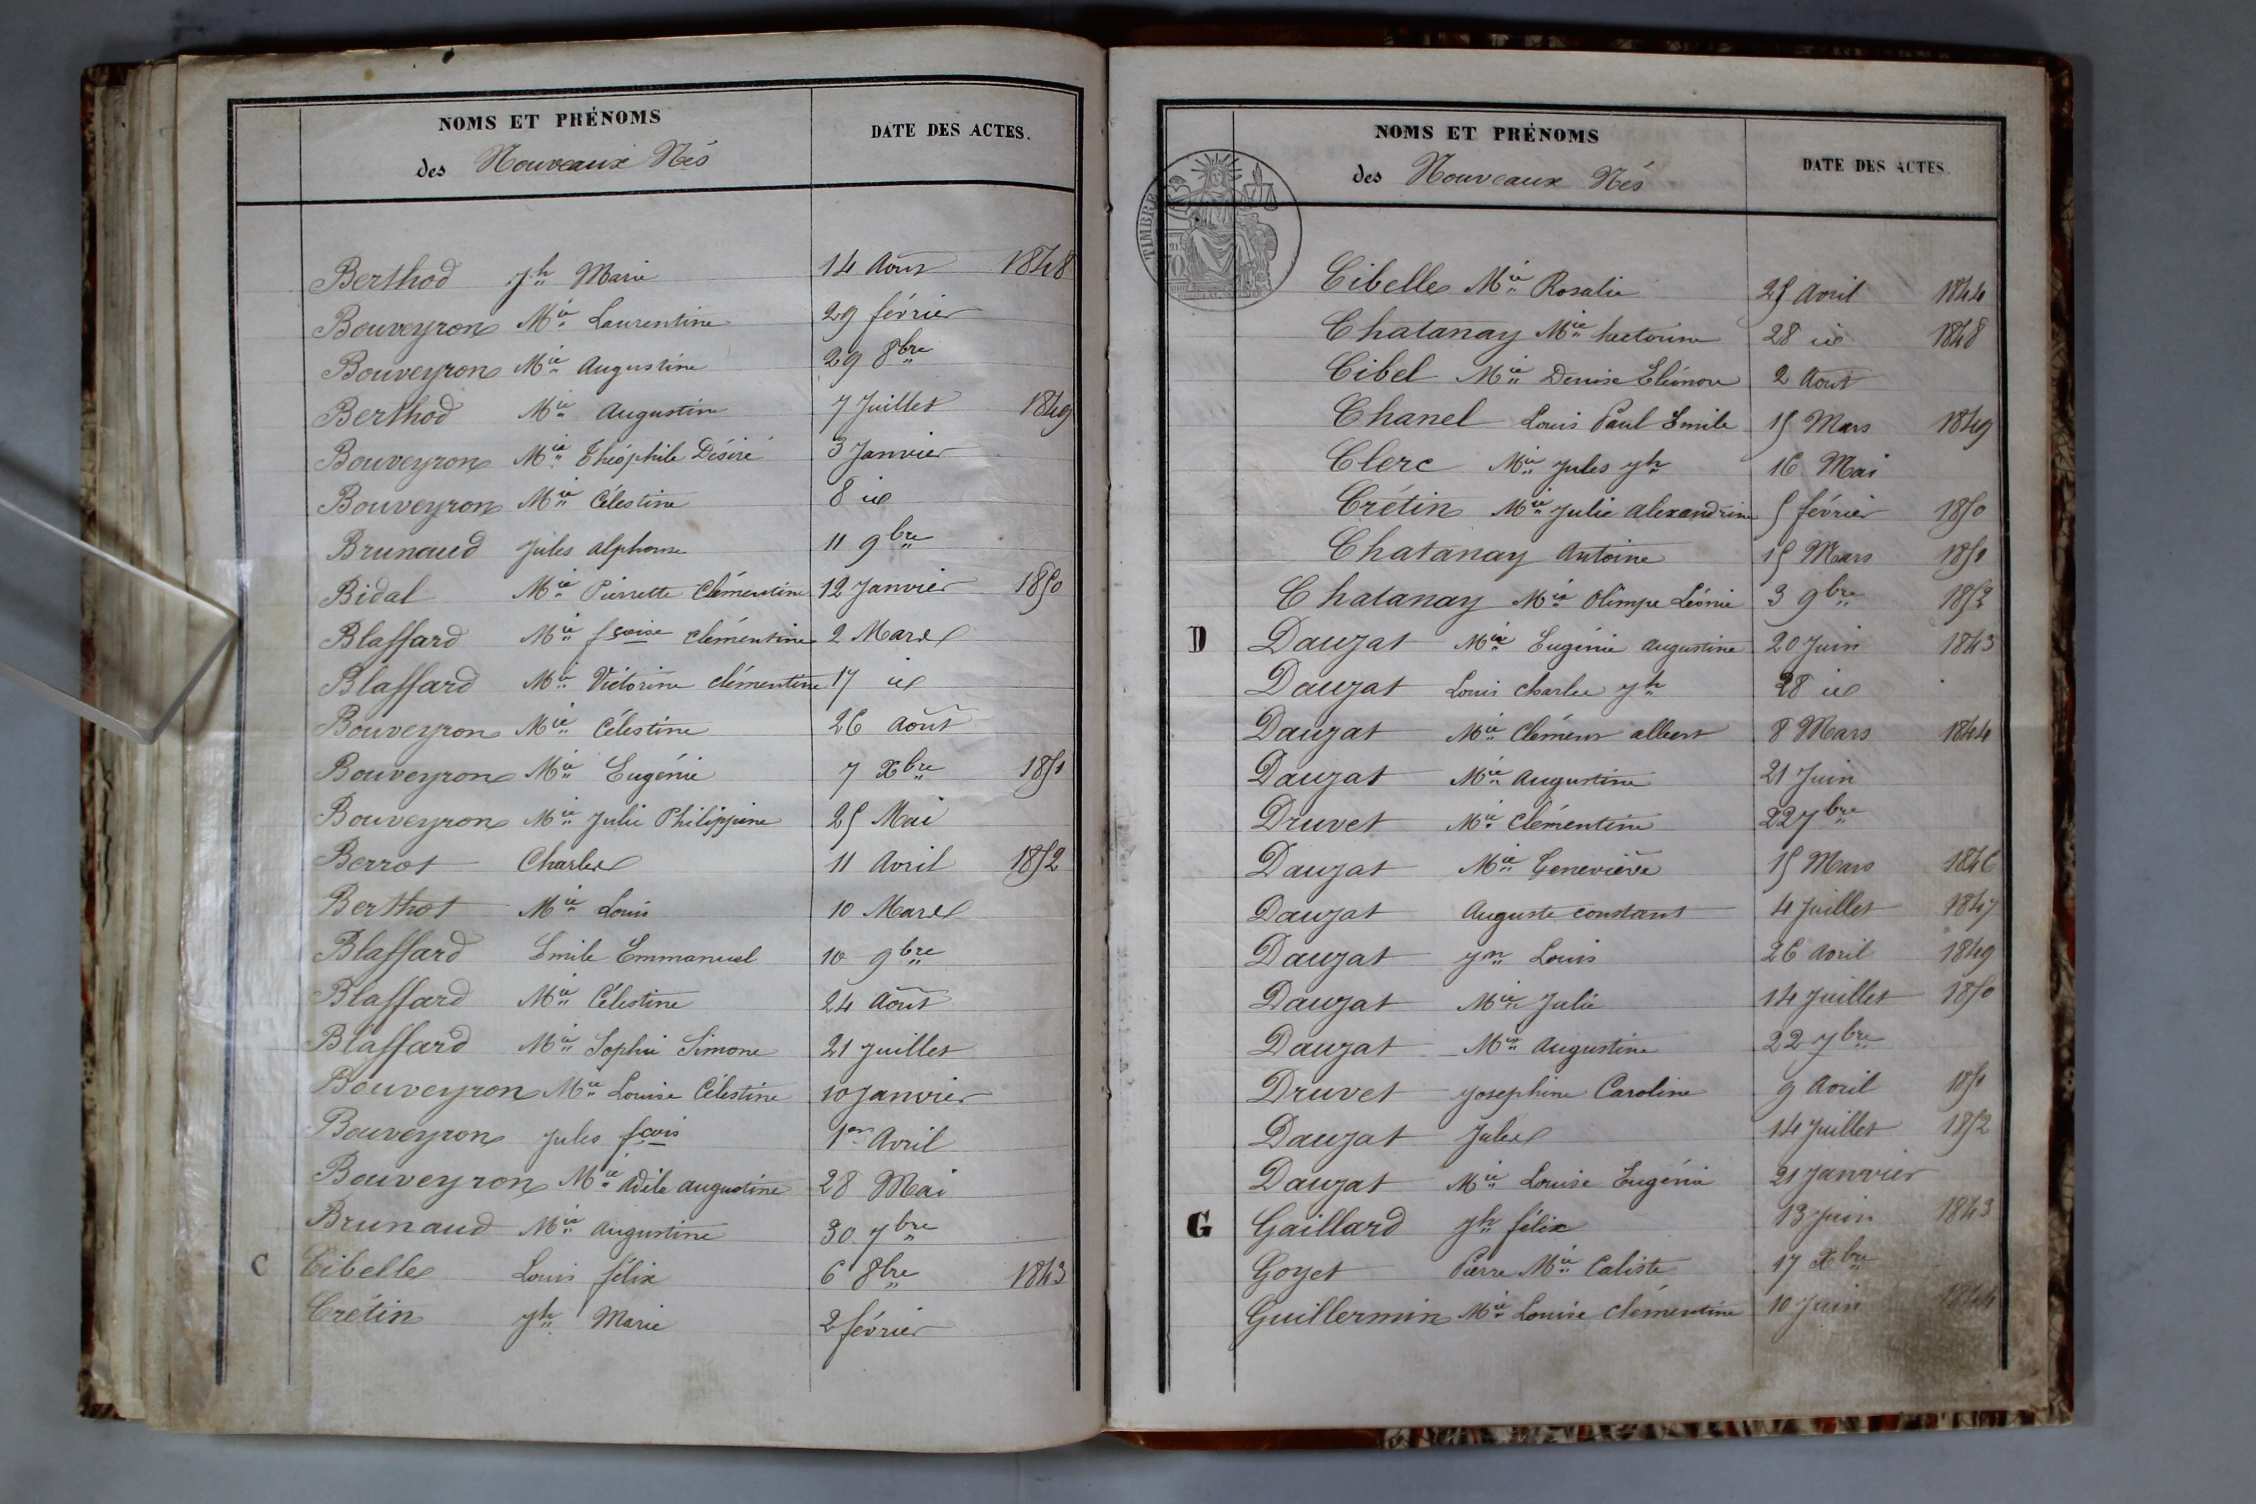 NOMS ET PRÉNOMS
DATE DES ACTES.
des Nouveaux Nés
Berthod Jh Marie 14 Août 1848
Bouveyron Mie Laurentine 29 février
Bouveyron Mie Augustine 29 8bre
Berthod Mie Augustin 7 Juillet 1849
Bouveyron Mie Théophile Désiré 3 Janvier
Bouveyron Mie Célestine 8 id
Brunaud Jules Alphonse 11 9bre
Bidal Mie Pierrette Clémentine 12 Janvier 1850
Blaffard Mie fçoise Clémentine 2 Mars
Blaffard Mie Victorine Clémentine 17 id
Bouveyron Mie Célestine 26 Août
Bouveyron Mie Eugénie 7 Xbre 1851
Bouveyron Mie Julie Philippine 25 Mai
Berrot Charles 11 Avril 1852
Berthot Mie Louis 10 Mars
Blaffard Emile Emmanuel 10 9bre
Blaffard Mie Célestine 24 Août
Blaffard Mie Sophie Simone 21 Juillet
Bouveyron Mie Louise Célestine 10 Janvier
Bouveyron Jules fçois 1er Avril
Bouveyron Mie Adèle Augustine 28 Mai
Brunaud Mie Augustine 30 7bre
C Cibelle Louis félix 6 8bre 1843
Crétin Jh Marie 2 février
NOMS ET PRÉNOMS
DATE DES ACTES.
des Nouveaux Nés
TIMBRE
Cibelle Mie Rosalie 25 Avril 1844
Chatanay Mie hectorine 28 id 1848
Cibel Mie Denise Eléonore 2 Aout
Chanel Louis Paul Emile 15 Mars 1849
Clerc Mie Jules Jh 16 Mai
Crétin Mie Julie Alexandrine 5 février 1850
Chatanay Antoine 15 Mars 1851
Chatanay Mie Olimpe Léonie 3 9bre 1852
D Dauzat Mie Eugénie Augustine 20 Juin 1843
Dauzat Louis Charles Jh 28 id
Dauzat Mie Clément Albert 8 Mars 1844
Dauzat Mie Augustine 21 Juin
Druvet Mie Clémentine 22 7bre
Dauzat Mie Geneviève 15 Mars 1846
Dauzat Auguste Constant 4 Juillet 1847
Dauzat Jn Louis 26 Avril 1849
Dauzat Mie Julie 14 Juillet 1850
Dauzat Mie Augustine 22 7bre
Druvet Josephine Caroline 9 Avril 1851
Dauzat Jules 14 Juillet 1852
Dauzat Mie Louise Eugénie 21 Janvier
G Gaillard Jh félix 13 Juin 1843
Goyet Pierre Mie Caliste 17 Xbre
Guillermin Mie Louise Clémentine 10 Juin 1844